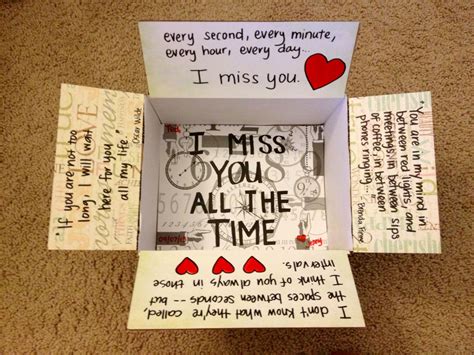 every second, every minute,
every hour, every day...
I miss you.
"If you are not too
long, I will wait
here for you
all my life"
Oscar Wilde
I MISS
YOU
ALL THE
TIME
"You are in my mind in
between red lights, and
meetings, in between sips
of coffee, in between
phones ringing...
I don't know what they're called,
the spaces between seconds -- but
I think of you always in those
intervals.